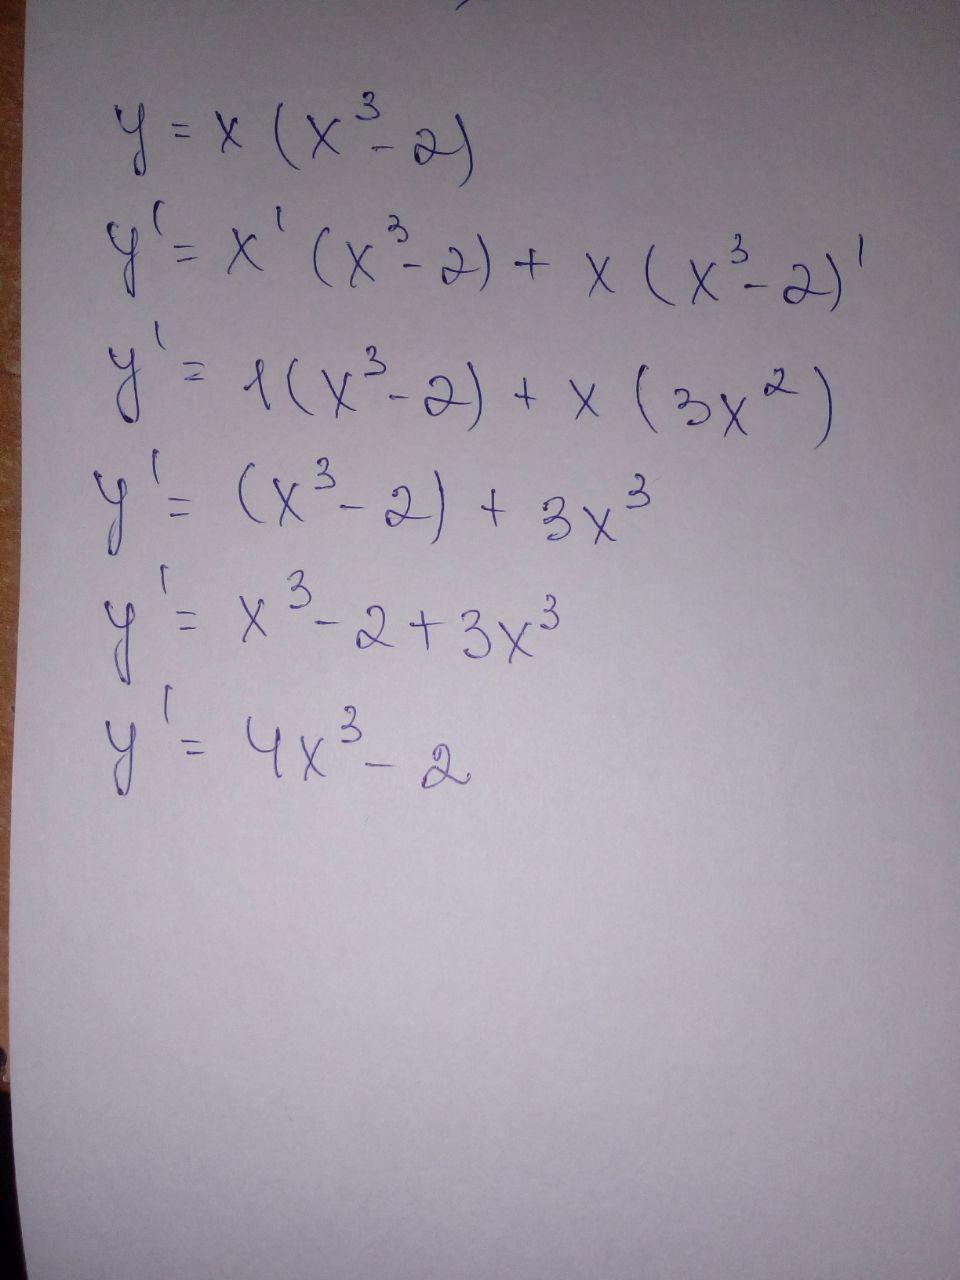 y = x (x³ - 2)
y' = x' (x³ - 2) + x (x³ - 2)'
y' = 1(x³ - 2) + x (3x²)
y' = (x³ - 2) + 3x³
y' = x³ - 2 + 3x³
y' = 4x³ - 2